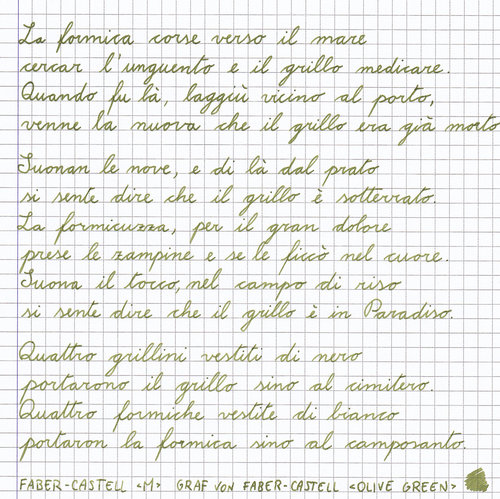 La formica corse verso il mare
cercar l'unguento e il grillo medicare.
Quando fu là, laggiù vicino al porto,
venne la nuova che il grillo era già morto
Suonan le nove, e di là dal prato
si sente dire che il grillo è sotterrato.
La formicuzza, per il gran dolore
prese le zampine e se le ficcò nel cuore.
Suona il tocco, nel campo di riso
si sente dire che il grillo è in Paradiso.
Quattro grillini vestiti di nero
portarono il grillo sino al cimitero.
Quattro formiche vestite di bianco
portaron la formica sino al camposanto.
FABER-CASTELL <M> GRAF VON FABER-CASTELL <OLIVE GREEN>